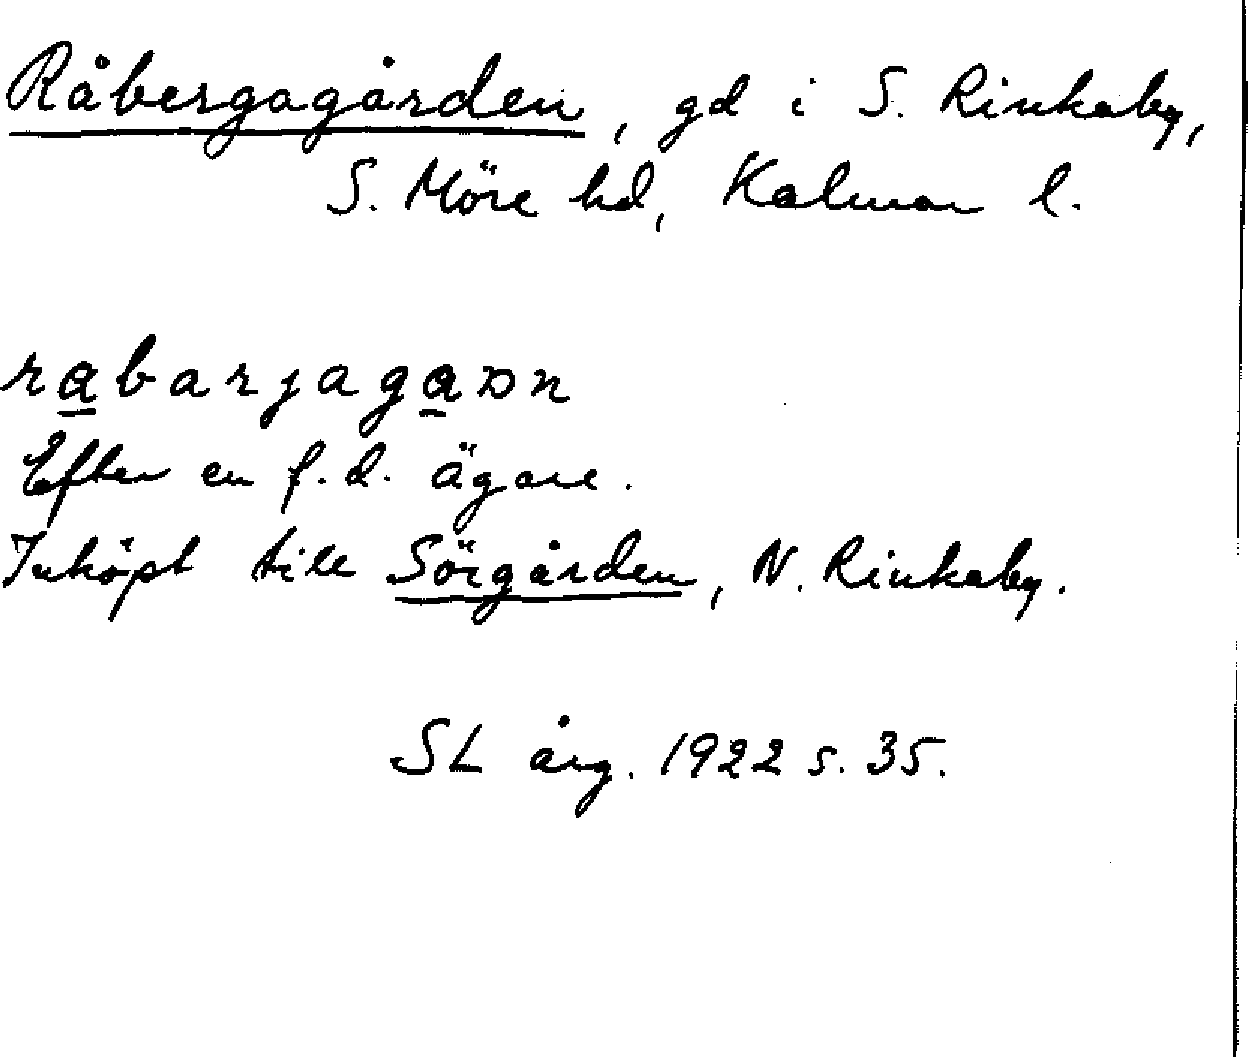 Råbergagården, gd i S. Rinkaby,
S. Möre hd, Kalmar l.
rabarjagaɒn
Efter en f.d. ägare.
Inköpt till Sörgården, N. Rinkaby.
SL årg. 1922 s. 35.